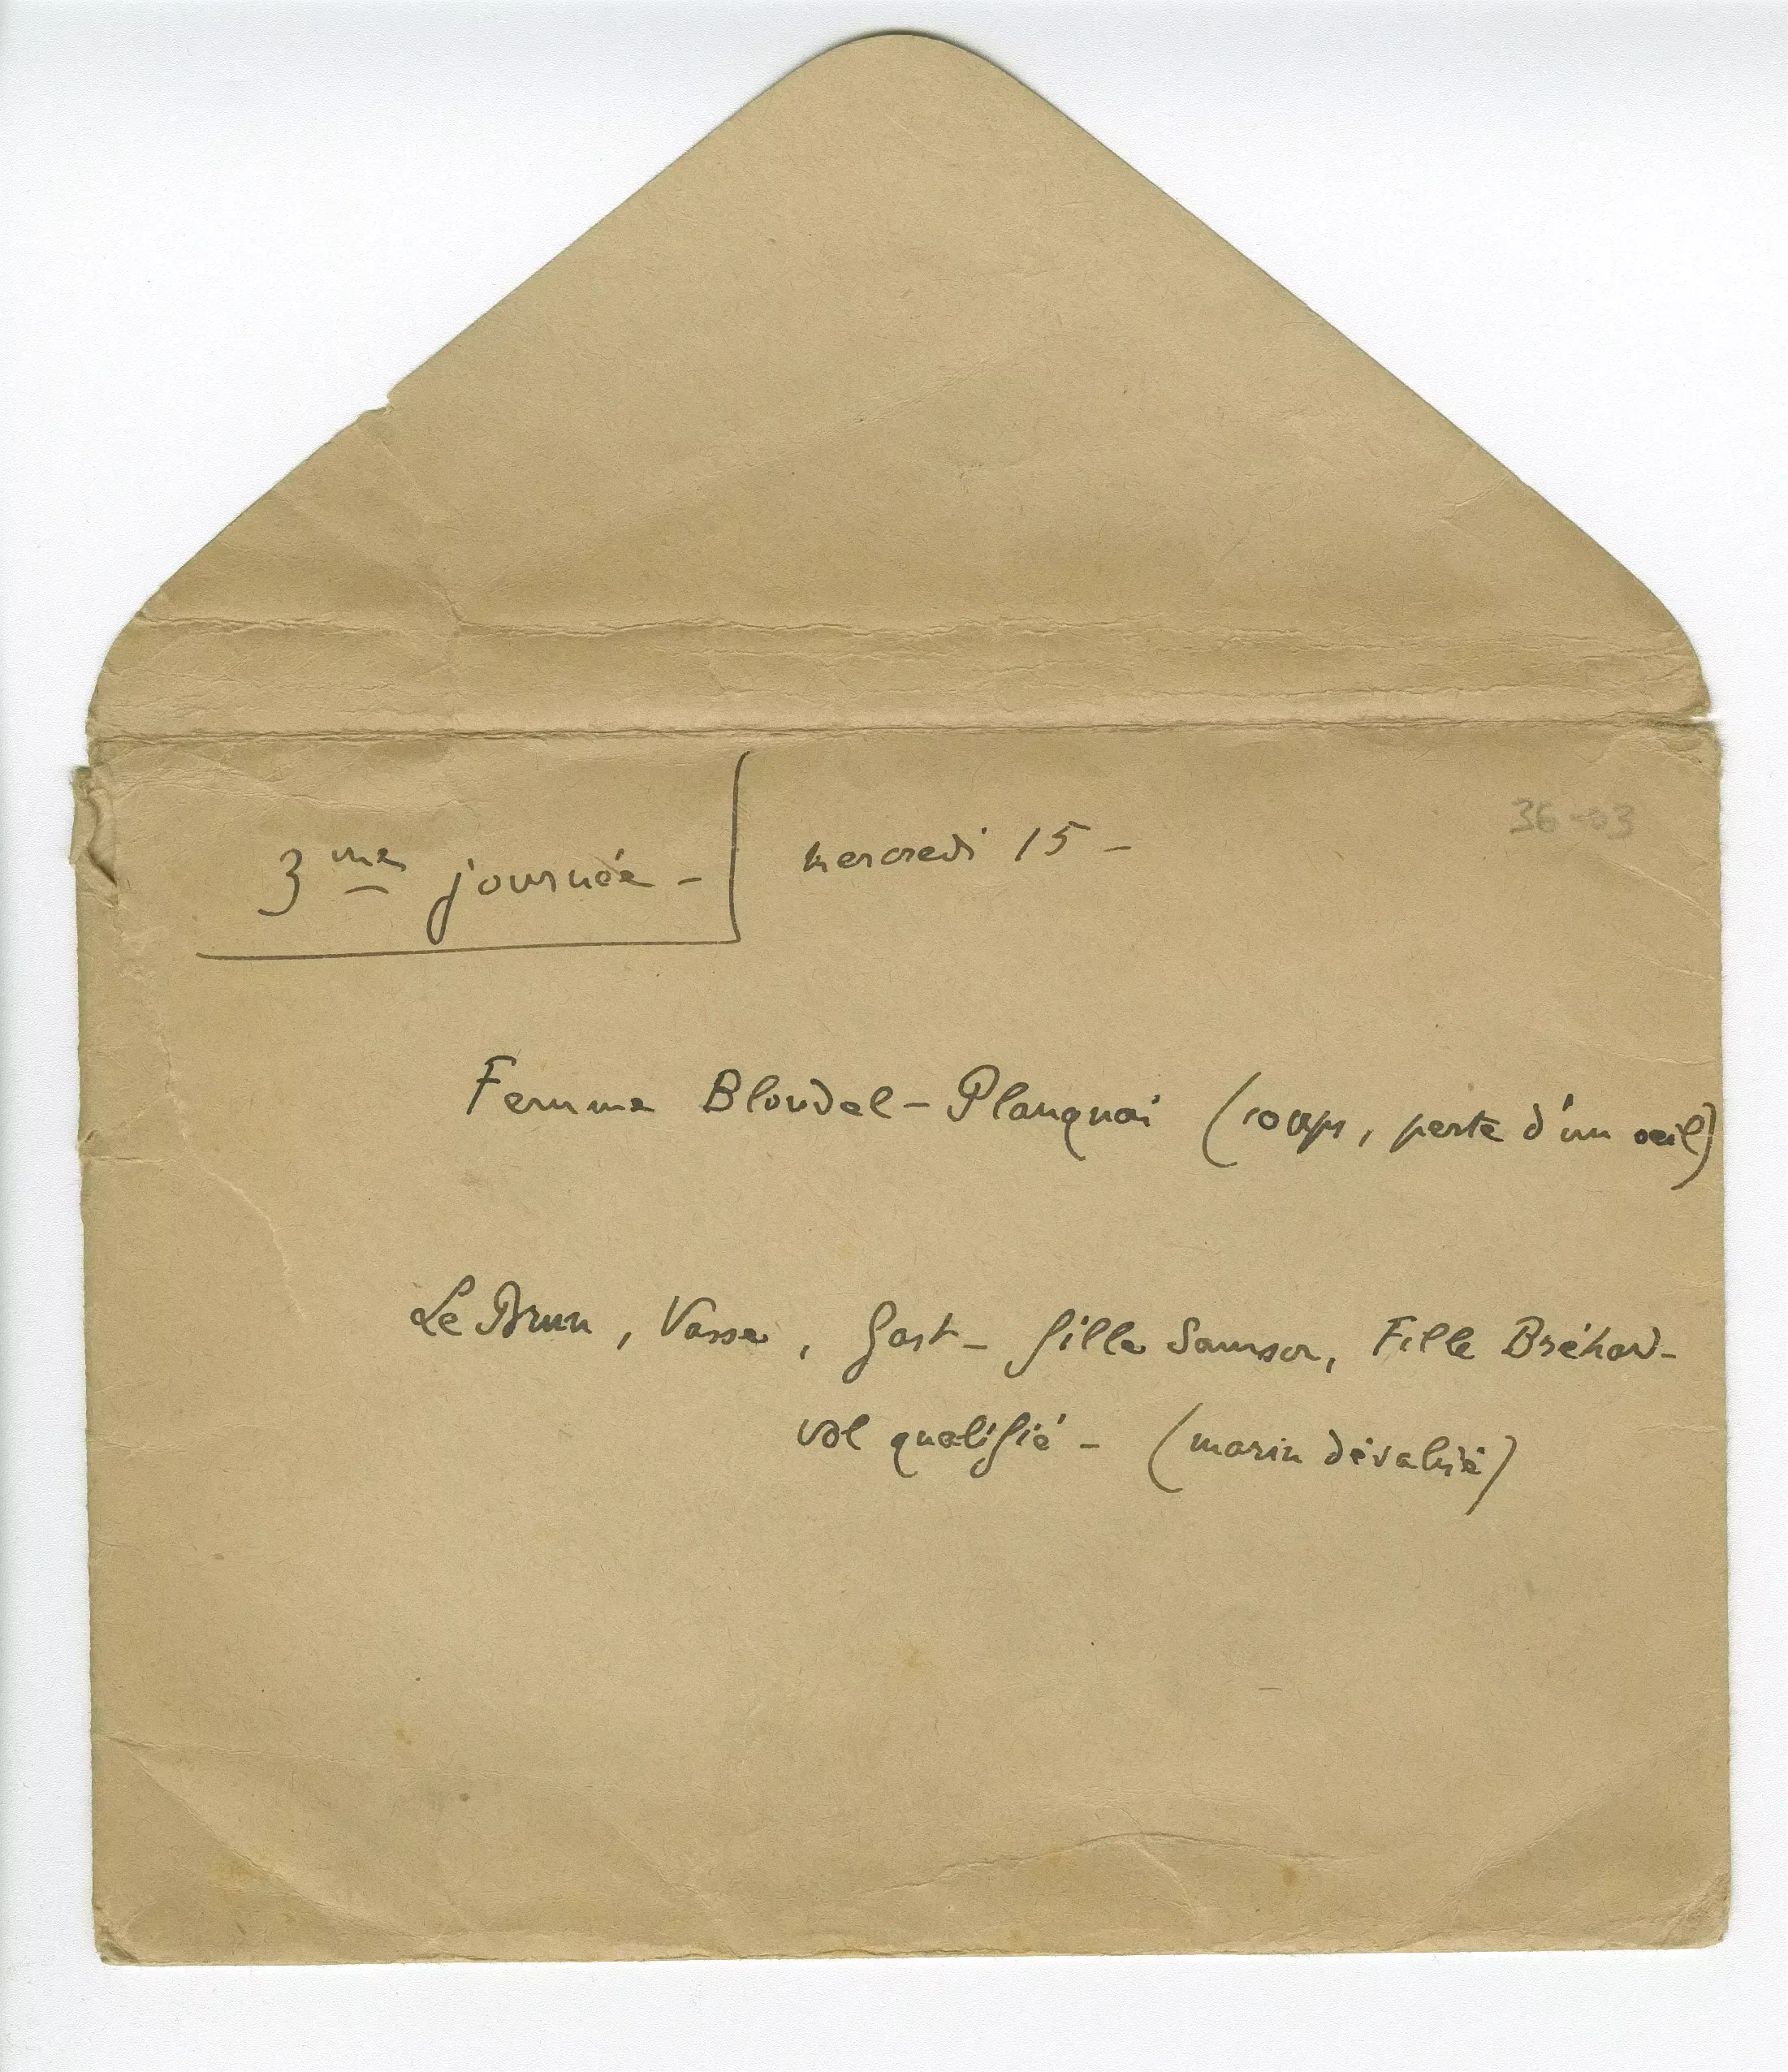 3me journée - mercredi 15 -
36-03
Femme Blondel - Planquai (coups, perte d'un oeil)
Le Brun, Vasse, Gast - fille Samson, Fille Bréhard -
vol qualifié - (marin dévalisé)